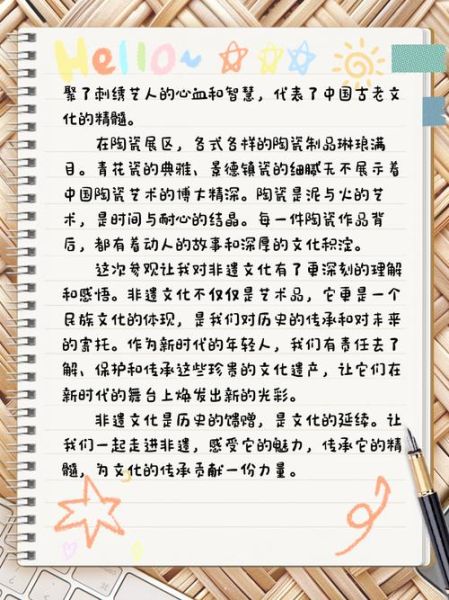 Hello~
聚了刺绣艺人的心血和智慧，代表了中国古老文
化的精髓。
在陶瓷展区，各式各样的陶瓷制品琳琅满
目。青花瓷的典雅、景德镇瓷的细腻无不展示着
中国陶瓷艺术的博大精深。陶瓷是泥与火的艺
术，是时间与耐心的结晶。每一件陶瓷作品背
后，都有着动人的故事和深厚的文化积淀。
这次参观让我对非遗文化有了更深刻的理解
和感悟。非遗文化不仅仅是艺术品，它更是一个
民族文化的体现，是我们对历史的传承和对未来
的寄托。作为新时代的年轻人，我们有责任去了
解、保护和传承这些珍贵的文化遗产，让它们在
新时代的舞台上焕发出新的光彩。
非遗文化是历史的馈赠，是文化的延续。让
我们一起走进非遗，感受它的魅力，传承它的精
髓，为文化的传承贡献一份力量。